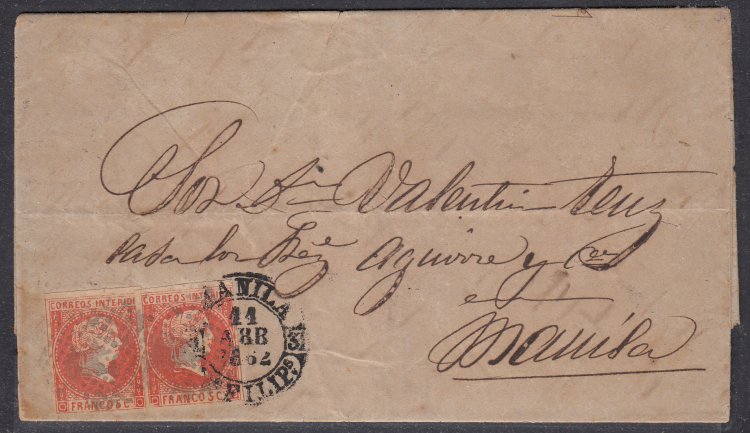 Sor Dn Valentin Tenz
casa los Sres Aguirre y Ca
en
Manila
CORREOS INTERIO
FRANCO 5 C
CORREOS INT
FRANCO 5 C
MANILA
11
ABR
1862
FILIPs